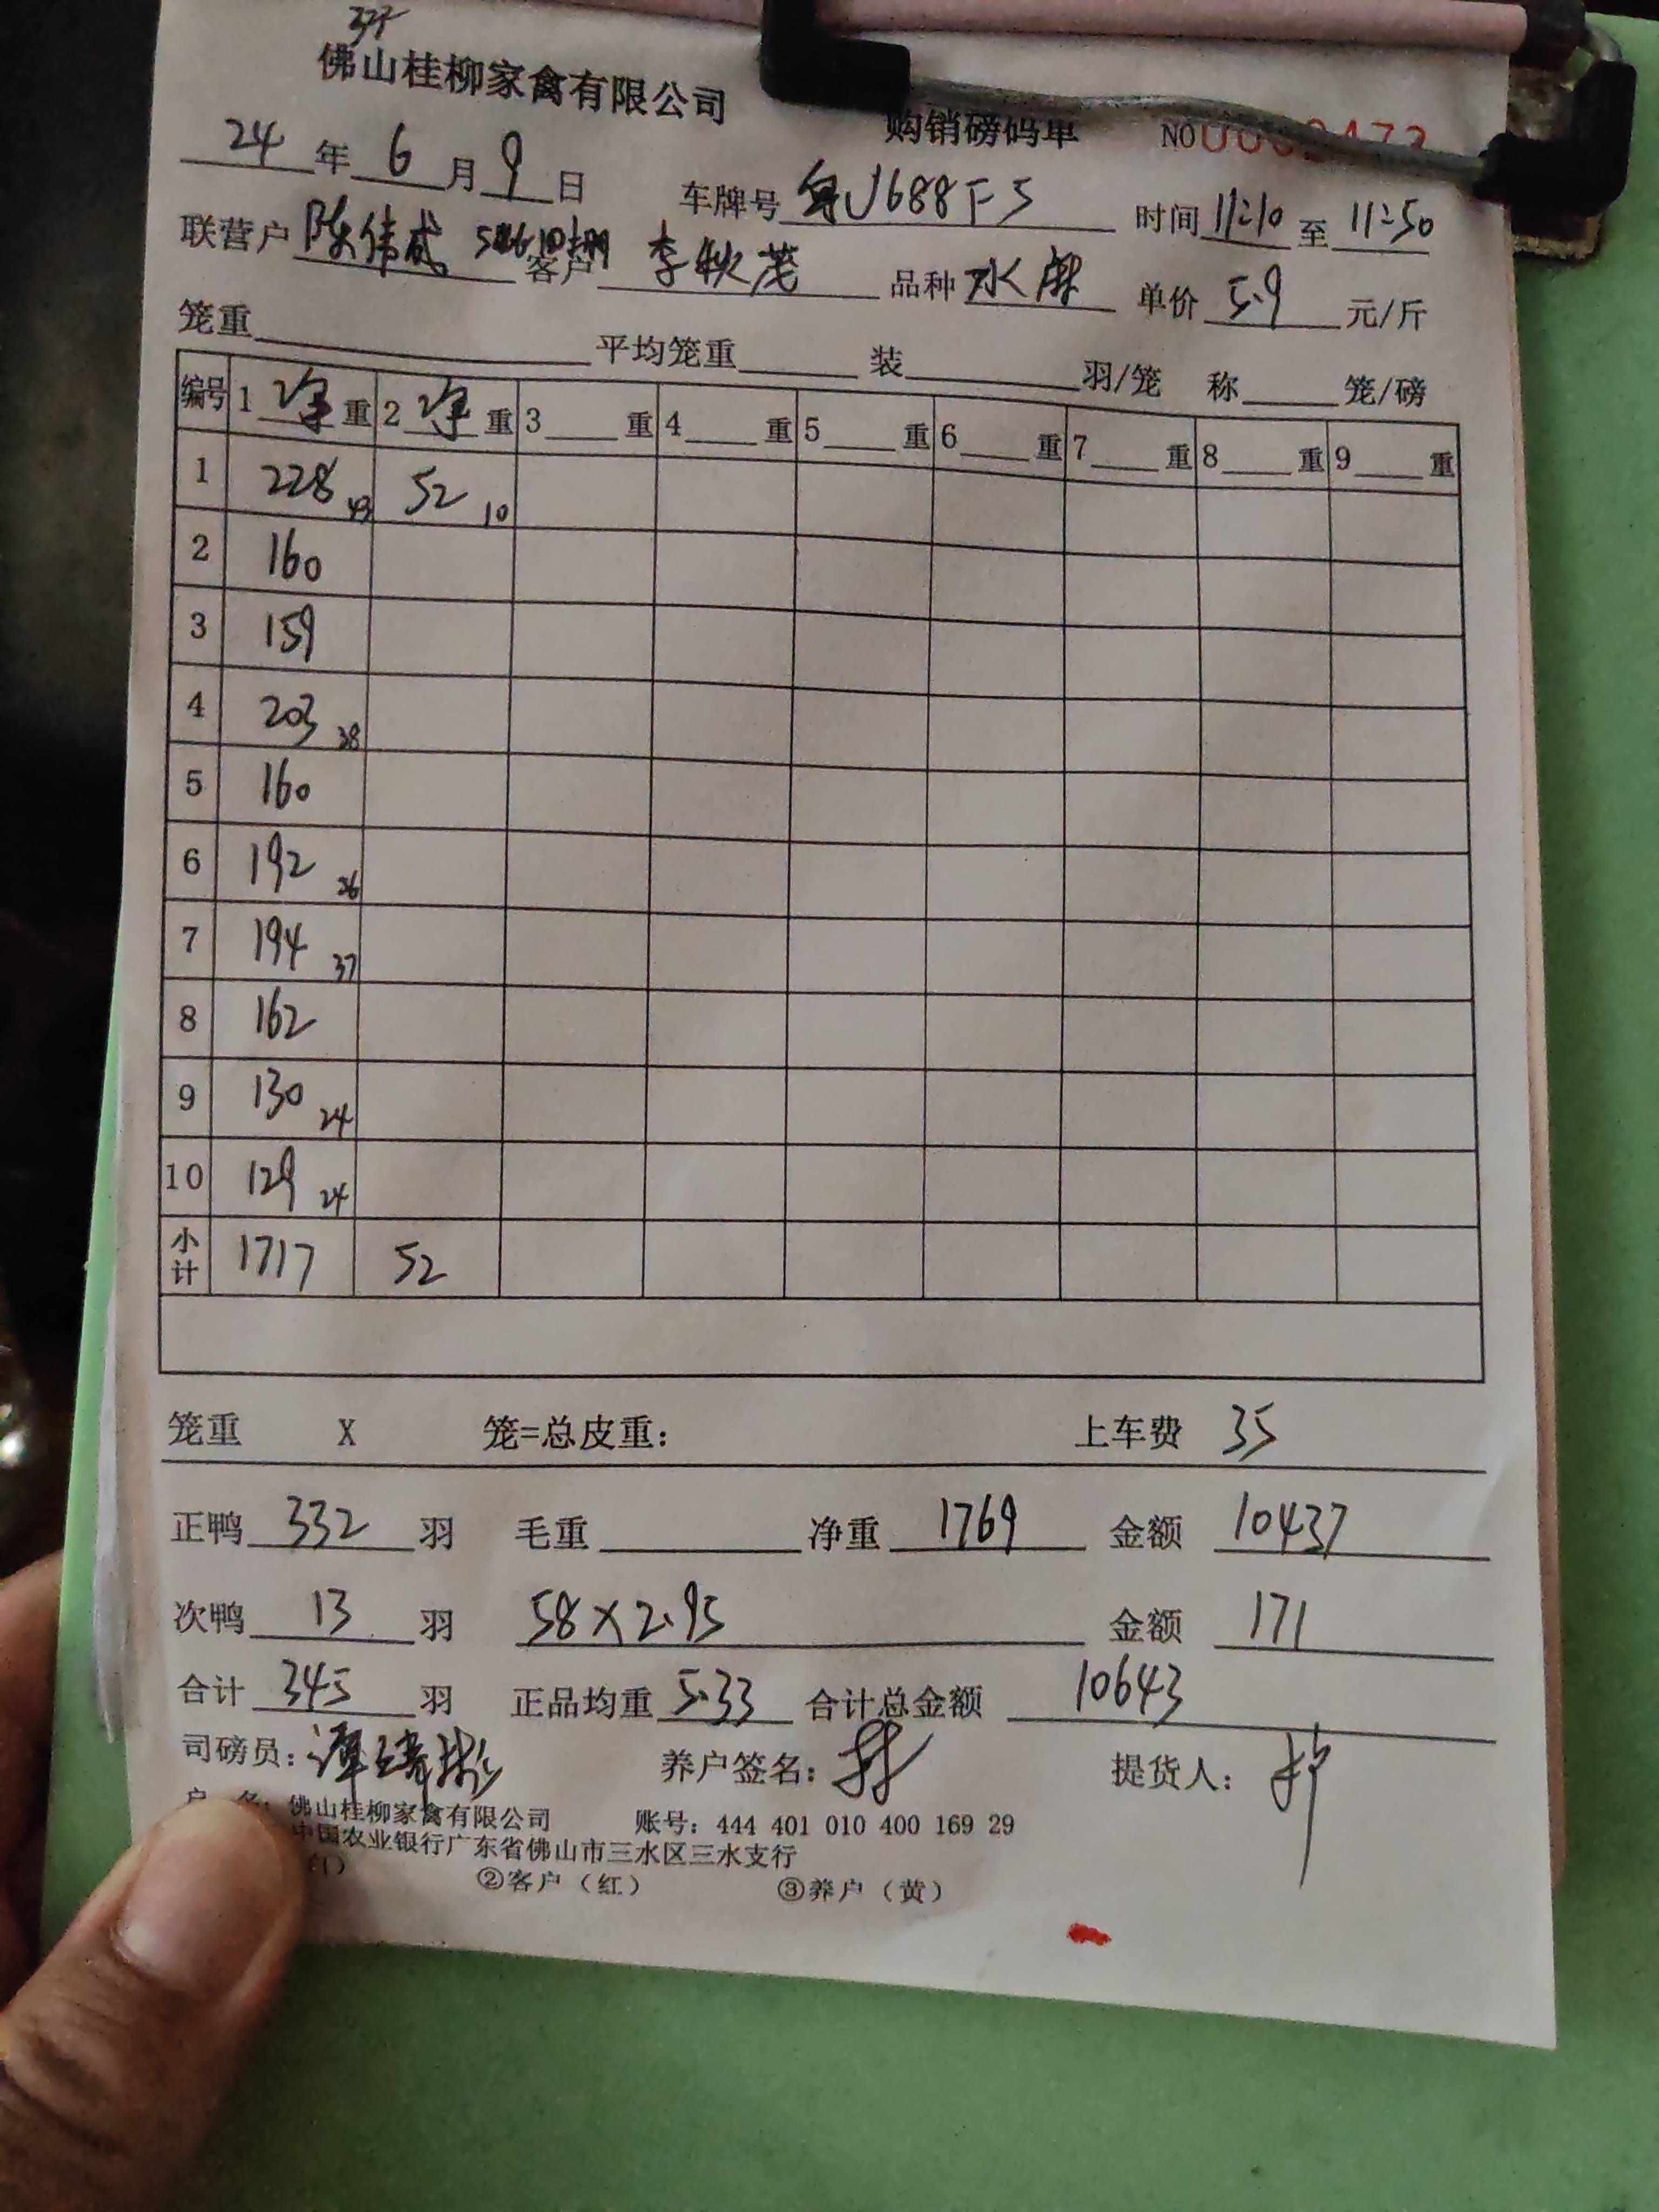 佛山桂柳家禽有限公司
购销磅码单 NO
24年6月9日 车牌号 J688F5 时间11:10至11:50
联营户 陈伟成 客户 李秋茂 品种 水 单价5.9元/斤
笼重 平均笼重 装 羽/笼 称 笼/磅
编号 1净重 2净重 3重 4重 5重 6重 7重 8重 9重
1 228 43 52 10
2 160
3 159
4 203 38
5 160
6 192 36
7 194 37
8 162
9 130 24
10 129 24
小计 1717 52
笼重 X 笼=总皮重: 上车费 35
正鸭332羽 毛重 净重1769 金额10437
次鸭13羽 58×2.95 金额171
合计345羽 正品均重5.33 合计总金额10643
司磅员: 养户签名: 提货人:
户名: 佛山桂柳家禽有限公司 账号: 444 401 010 400 169 29
中国农业银行广东省佛山市三水区三水支行
白) ②客户(红) ③养户(黄)